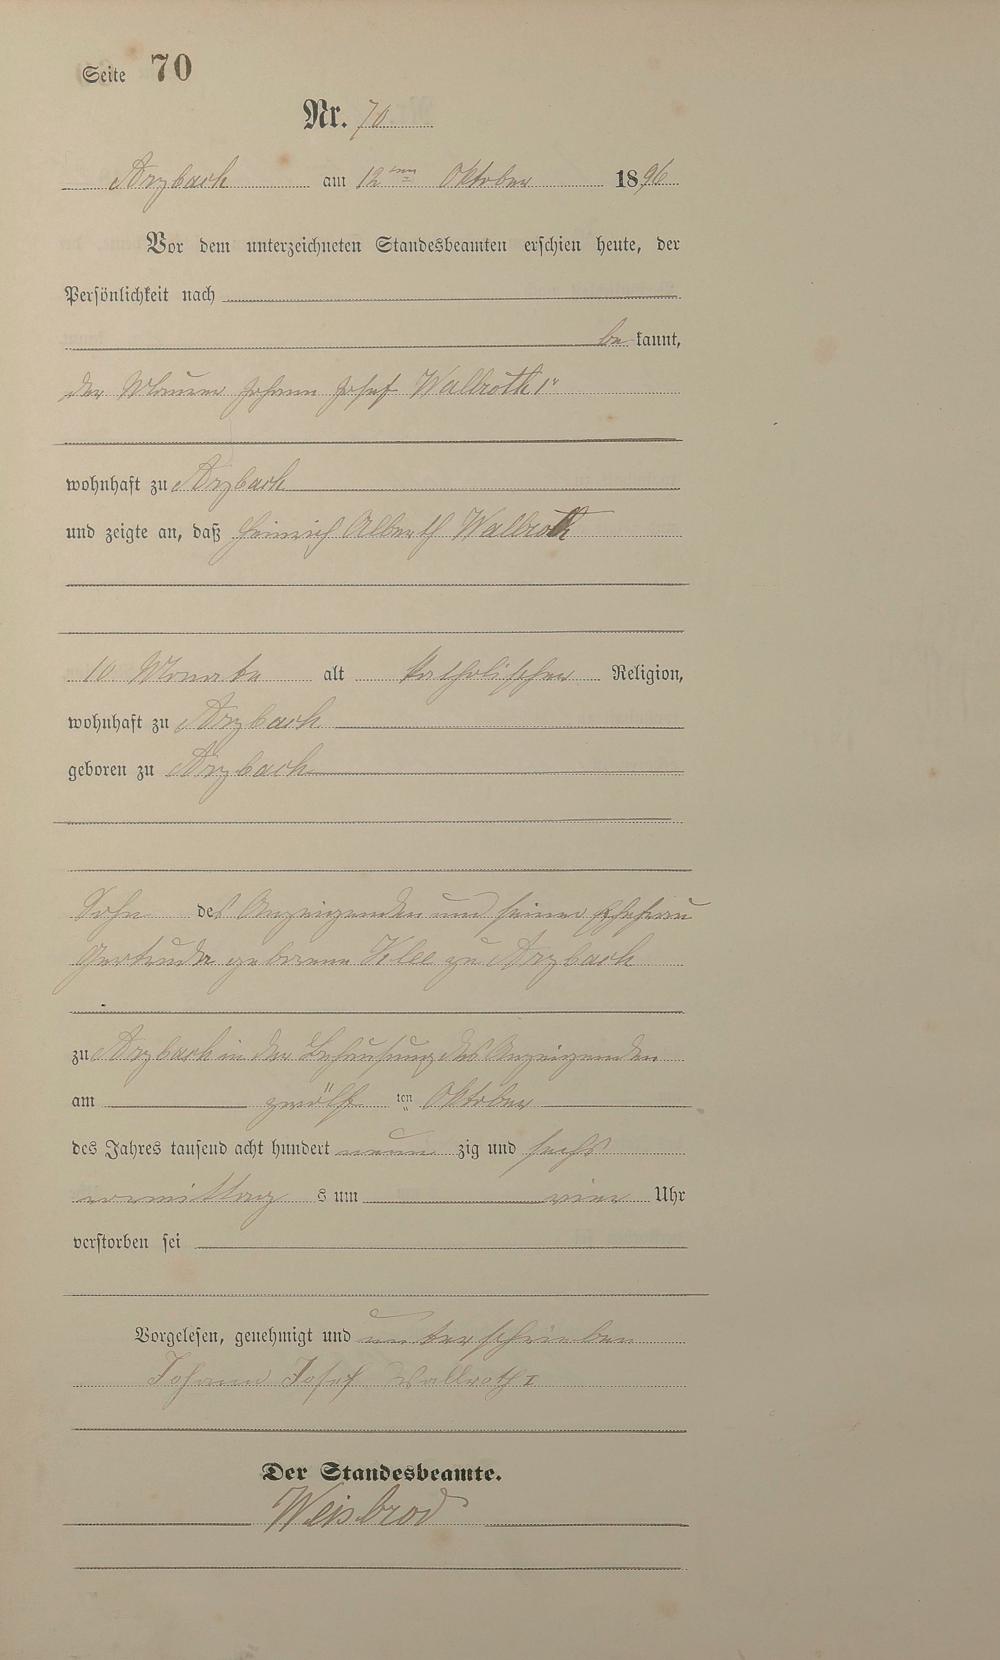 Seite 70
Nr. 70
Arzbach am 12ten Oktober 1896
Vor dem unterzeichneten Standesbeamten erschien heute, der
Persönlichkeit nach
be kannt,
der Maurer Johann Josef Wallroth 1r
wohnhaft zu Arzbach
und zeigte an, daß Heinrich Alberth Wallroth
10 Monate alt katholischer Religion,
wohnhaft zu Arzbach
geboren zu Arzbach
Sohn des Anzeigenden und seiner Ehefrau
Gertruda geborene Klee zu Arzbach
zu Arzbach in der Behausung des Anzeigenden
am zwölf ten Oktober
des Jahres tausend acht hundert neun zig und sechs
vormittag s um vier Uhr
verstorben sei
Vorgelesen, genehmigt und unterschrieben
Johann Josef Wallroth I
Der Standesbeamte.
Weisbrod